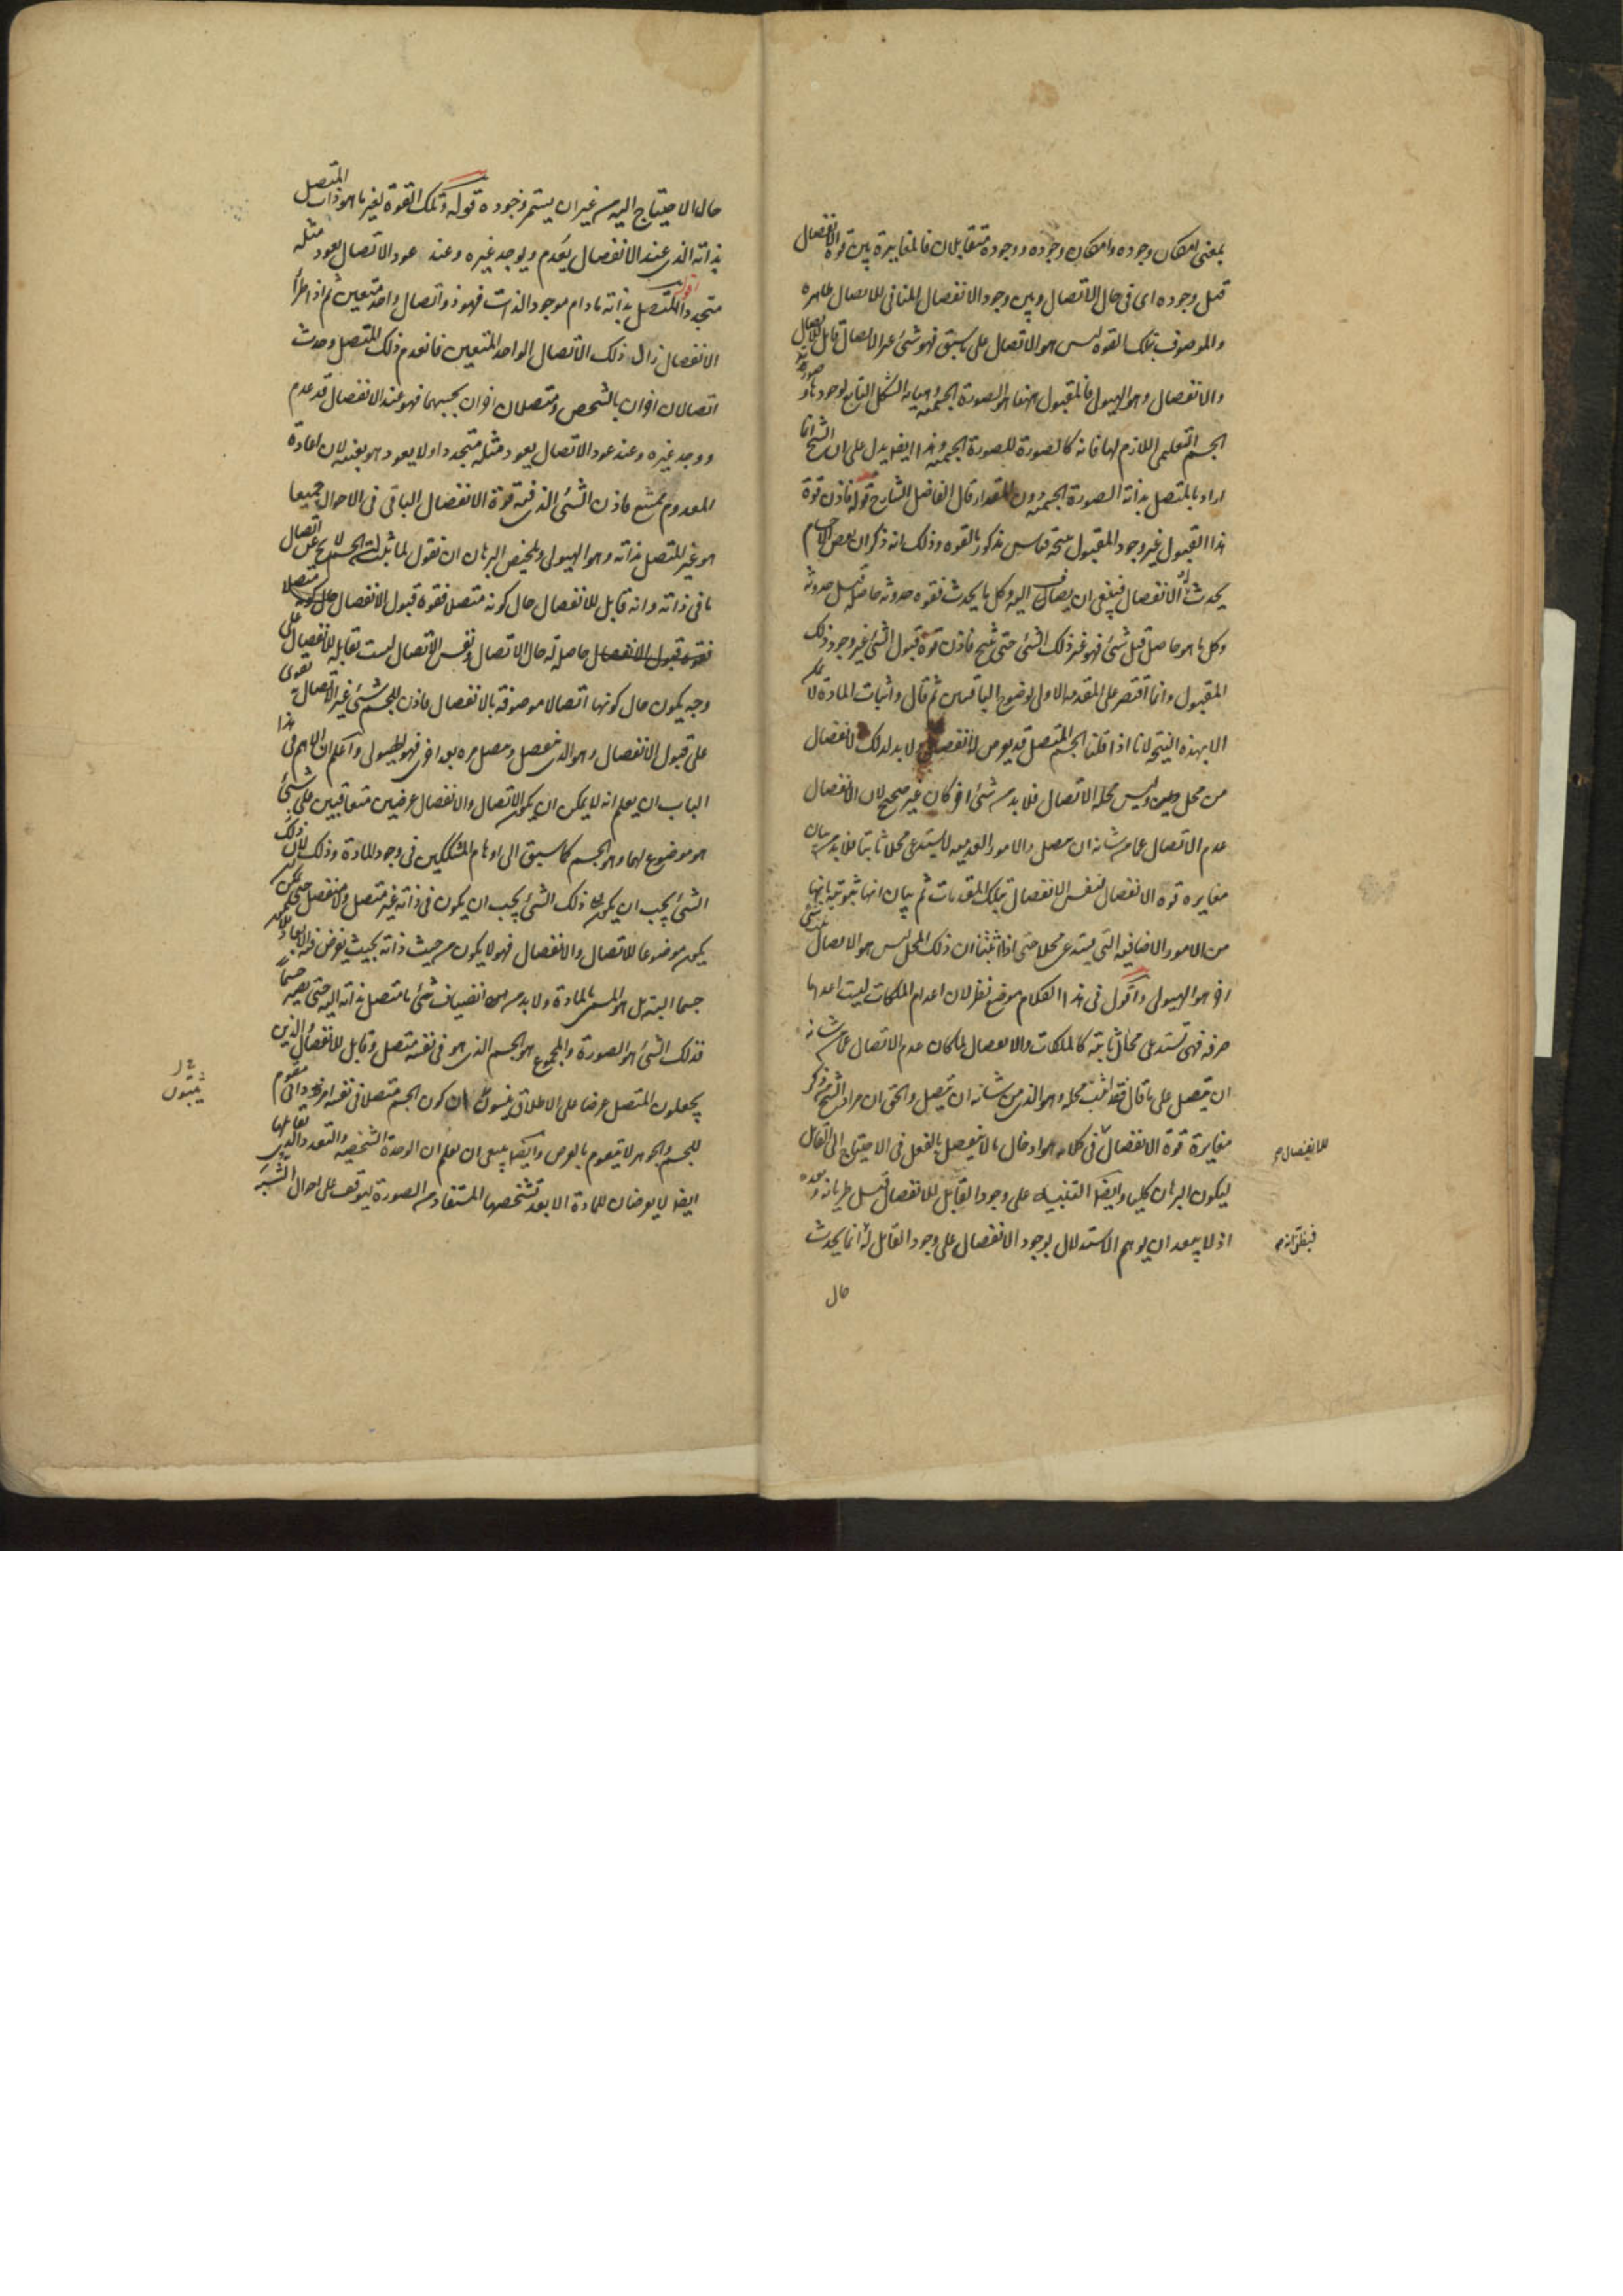 بمعنى امكان وجوده وامكان وجوده ووجوده متقابلان فالمغايرة بين قوة الانفصال
قبل وجوده اى فى حال الاتصال وبين وجود الانفصال المنافى للاتصال ظاهره
والموصوف بتلك القوه ليس هو الاتصال على ما سبق فهو شئ غير الاتصال قابل للاتصال
والانفصال وهو الهيولى فالمقبول ههنا هو الصورة الجسمية وهيأته الشكل التابع لوجودها وصورته
الجسم التعليمى اللازم لها فانه كالصورة للصورة الجسمية وهذا ايضا يدل على ان الشيخ انما
اراد بالمتصل بذاته الصورة الجسمية دون المقدار قال الفاضل الشارح قوله فاذن قوة
هذا القبول غير وجود المقبول نتيجة قياس مذكور بالقوه وذلك انه ذكر ان بعض الاجسام
يحدث له الانفصال فينبغى ان يضاف اليه وكل ما يحدث فقوه حدوثه حاصله قبل حدوثه
وكل ما هو حاصل قبل شئ فهو غير ذلك الشئ حتى ينتج فاذن قوة قبول الشئ غير وجود ذلك
المقبول وانما اقتصر على المقدمة الاولى لوضوح الباقيتين ثم قال واثبات المادة لا يمكن
الا بهذه النتيجة لانا اذا قلنا الجسم المتصل قد يعرض له انفصال ولا بد لذلك الانفصال
من محل وليس محله الاتصال فلا بد من شئ اخر كان غير صحيح لان الانفصال
عدم الاتصال عما من شانه ان يتصل والامور العدميه لا يستدعى محلا ثابتا فلا بد من بيان
مغايره قوه الانفصال لنفس الانفصال بتلك المقدمات ثم بيان انها ثبوتية بانها
من الامور الاضافيه التى يستدعى محلا حتى اذا اثبتنا ان ذلك المحل ليس هو الاتصال ثبت شئ
اخر هو الهيولى واقول فى هذا الكلام موضع نظر لان اعدام الملكات ليست اعداما
صرفه فهى تستدعى محالا ثابتة كالملكات والانفصال لما كان عدم الاتصال عما من شانه
ان يتصل على ما قال فقد اثبت محله وهو الذى من شانه ان يتصل والحق ان مراد الشيخ من ذكر
مغايرة قوة الانفصال فى كلامه هو ادخال ما لا ينفصل بالفعل فى الاحتياج الى القابل
للانفصال صح
ليكون البرهان كليا وايضا التنبيه على وجود القابل للانفصال قبل طريانه وبعده
اذ لا يبعد ان يوهم الاستدلال بوجود الانفصال على وجود القابل له انما يحدث
فيظن انه
حال
حال الاحتياج اليه من غير ان يستمر وجوده قوله وتلك القوة لغير ما هو ذات المتصل
بذاته الذى عند الانفصال يعدم ويوجد غيره وعند عود الاتصال يعود مثله
متجددا اقول المتصل بذاته ما دام موجود الذات فهو ذو اتصال واحد متعين ثم اذا طرأ
الانفصال زال ذلك الاتصال الواحد المتعين فانعدم ذلك المتصل وحدث
اتصالان اخران بالشخص ومتصلان اخران بحسبهما فهو عند الانفصال قد عدم
ووجد غيره وعند عود الاتصال يعود مثله متجددا ولا يعود هو بعينه لان اعادة
المعدوم ممتنع فاذن الشئ الذى فيه قوة الانفصال الباقى فى الاحوال جميعا
هو غير المتصل بذاته وهو الهيولى وتلخيص البرهان ان نقول لما ثبت ان الجسم لا يخ عن اتصال
ما فى ذاته وانه قابل للانفصال حال كونه متصلا فقوة قبول الانفصال حال كونه متصلا
فقوه قبول الانفصال حاصلة له حال الاتصال ونفس الاتصال ليست بقابله للانفصال على
وجه يكون حال كونها اتصالا موصوفة بالانفصال فاذن للجسم شئ غير الاتصال به يقوى
على قبول الانفصال وهو الذى ينفصل ويتصل مره بعد اخرى فهو الهيولى واعلم ان الاهم فى هذا
الباب ان يعلم انه لا يمكن ان يكون الاتصال والانفصال عرضين متعاقبين على شئ
هو موضوع لهما وهو الجسم كما سبق الى اوهام المشككين فى وجود المادة وذلك لان ذلك
الشئ يجب ان يكون ذلك الشئ يجب ان يكون فى ذاته غير متصل ولا منفصل حتى يمكن ان
يكون موضوعا للاتصال والانفصال فهو لا يكون من حيث ذاته بحيث يفرض فيه الابعاد فلا يكون
جسما البتة بل هو المسمى بالمادة ولا بد من انضياف شئ ما متصل بذاته اليه حتى يصير جسما
فذلك الشئ هو الصورة والمجموع هو الجسم الذى هو فى نفسه متصل وقابل للانفصال والذين
يجعلون المتصل عرضا على الاطلاق ينسون ان كون الجسم متصلا فى نفسه امر ذاتى مقوم
للجسم والجوهر لا يتقوم بالعرض وايضا ينبغى ان يعلم ان الوحدة الشخصية والتعدد الذى يقابلها
ايضا لا يعرضان للمادة الا بعد تشخصها المستفاد من الصورة ليوقف على احوال الشبه
يثبتون